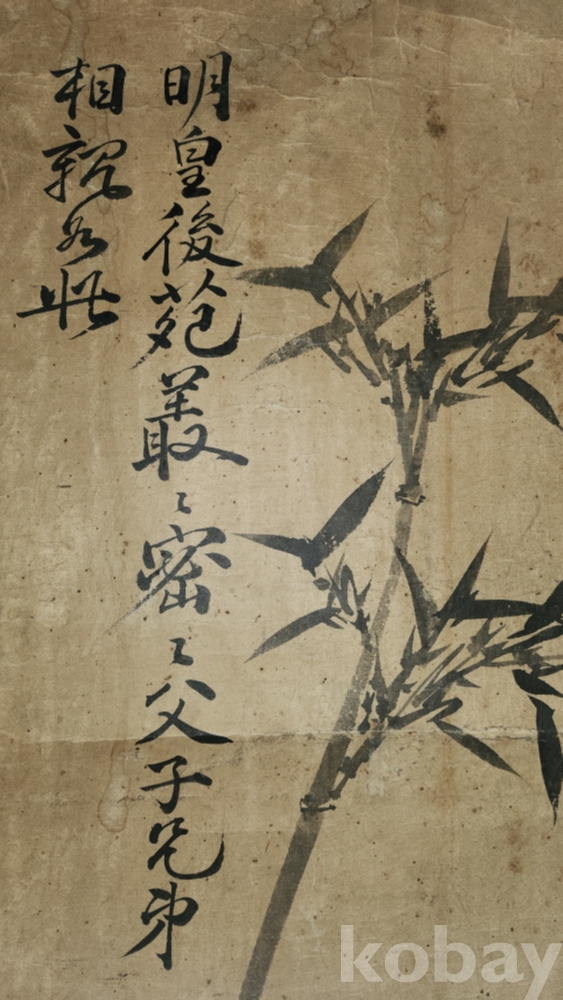 明皇後苑叢〻密〻父子兄弟
相親如此
kobay